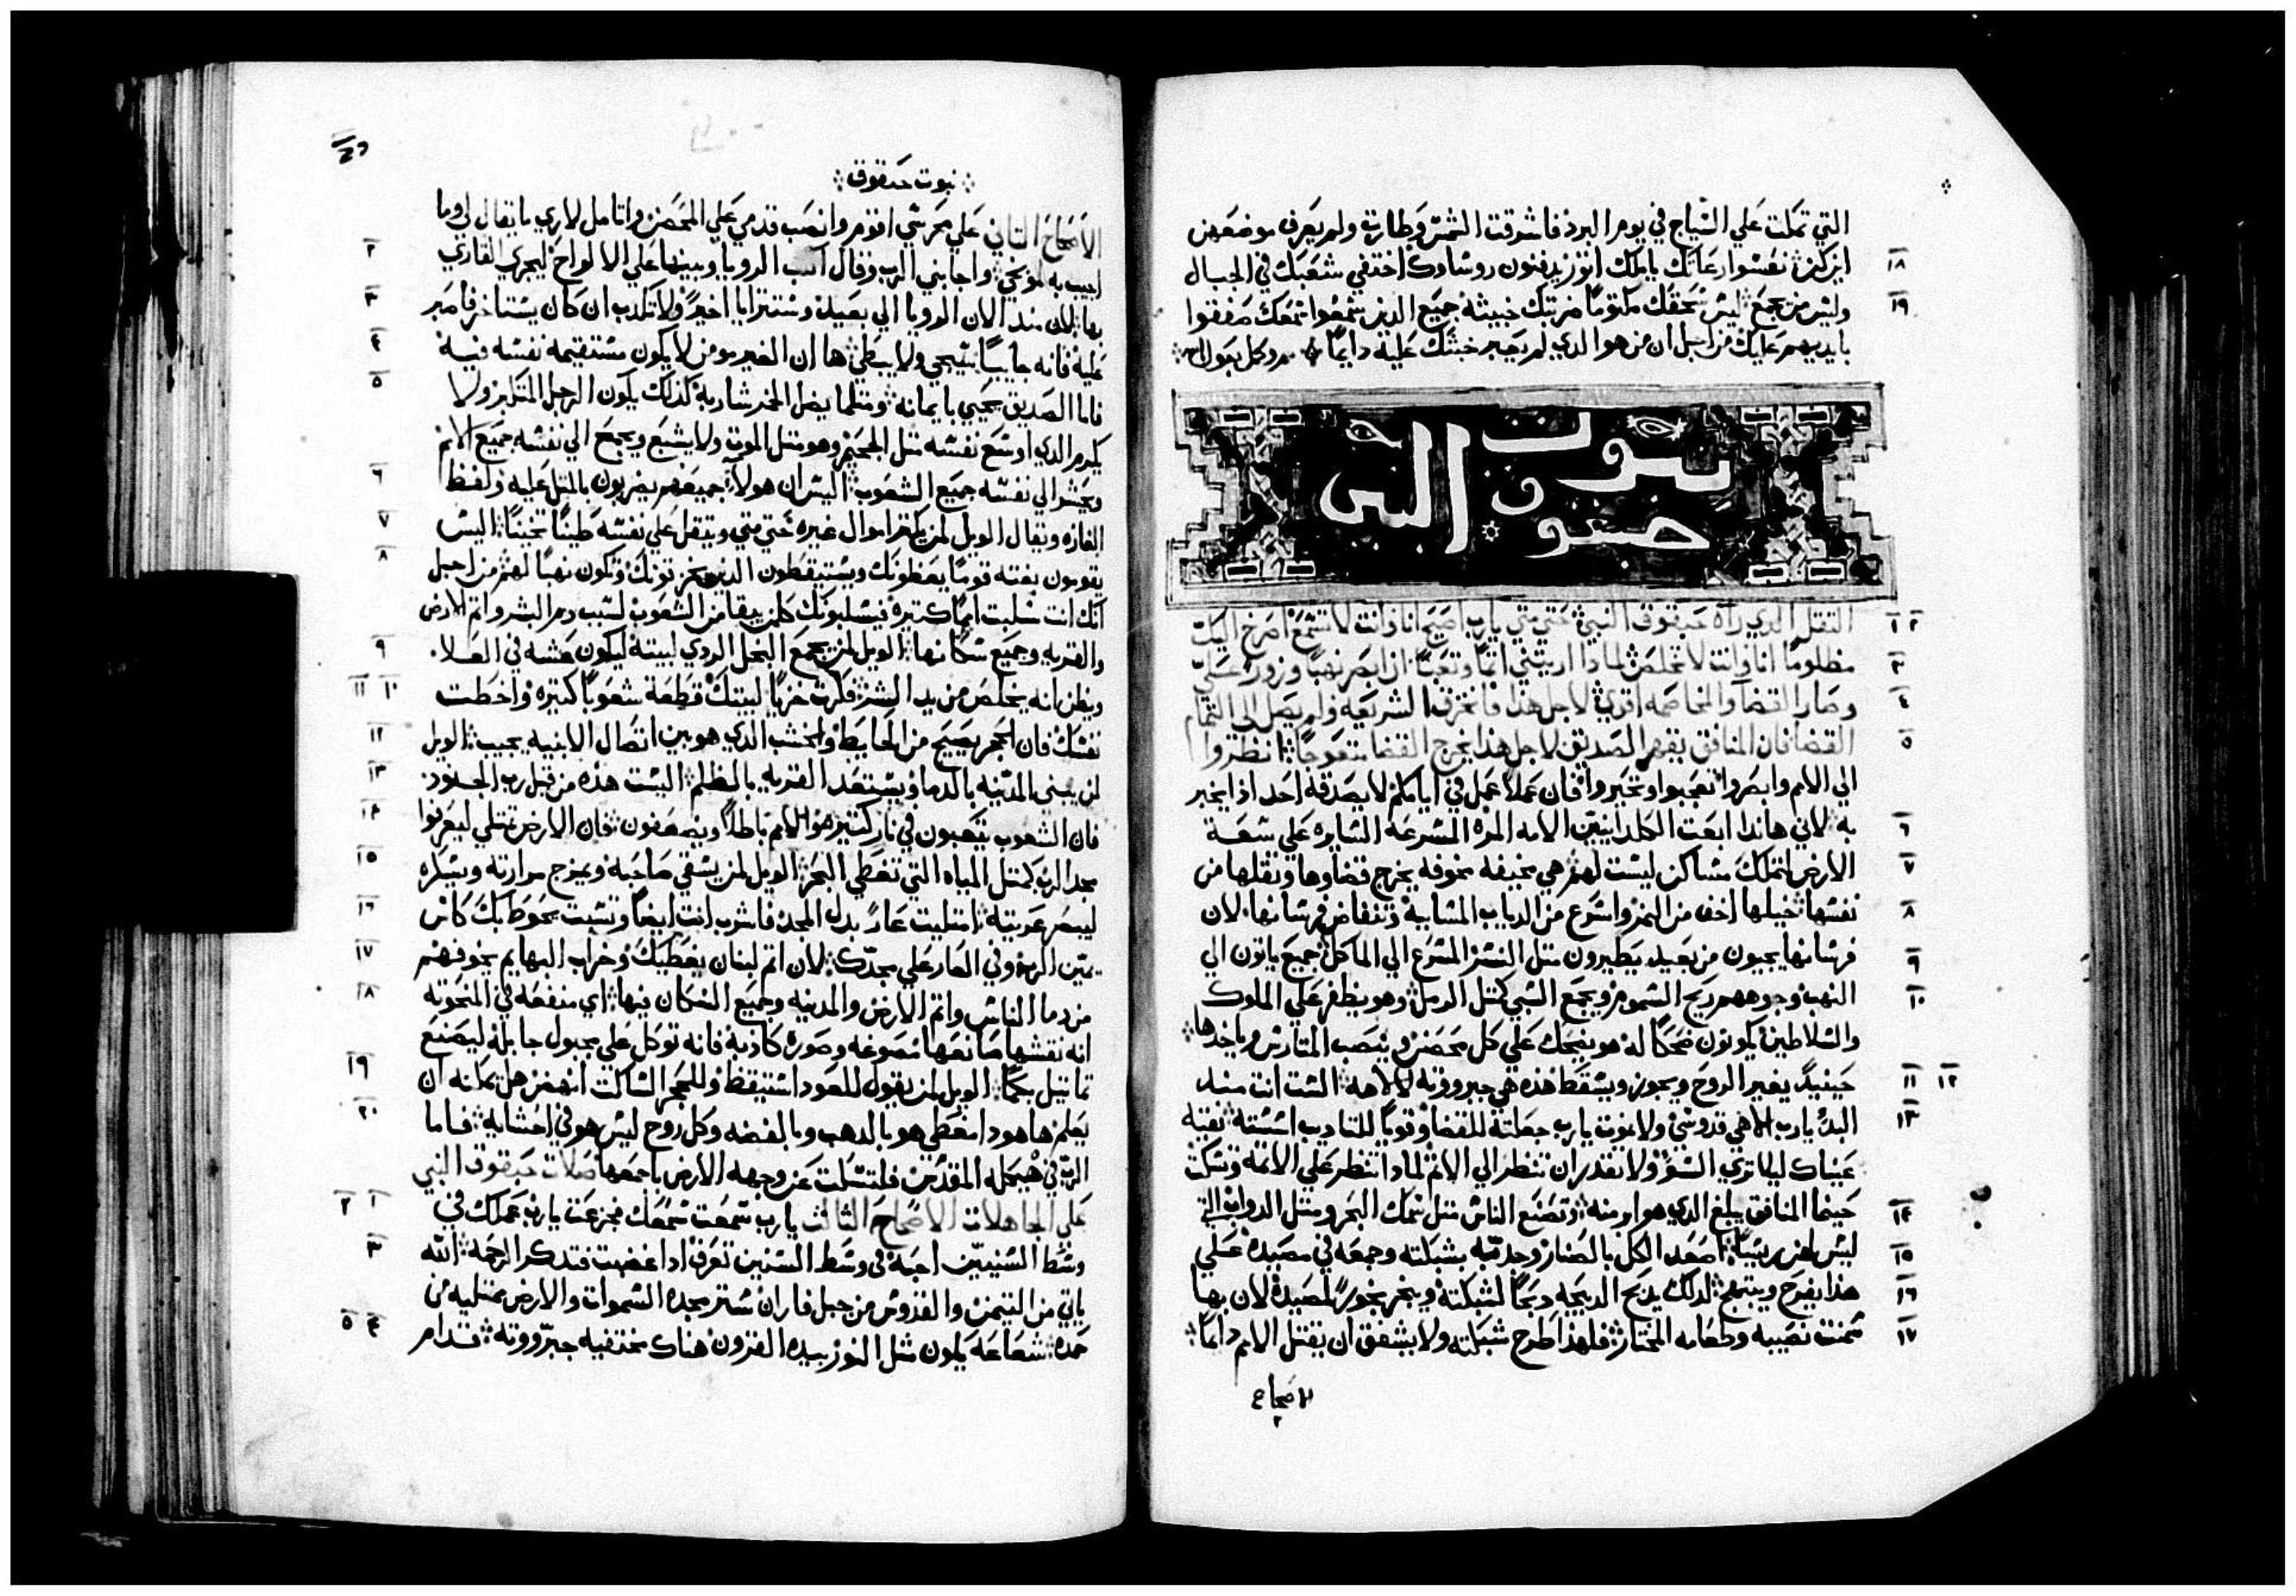 التي تملت علي السياج في يوم البرد فاشرقت الشمس وطارت ولم يعرف موضعهن
١٨ اين كن نعسوا رعاتك يا ملك اتور يدفنون روساوك اختفي شعبك في الجبال
١٩ وليس من يجمع ليس سحقك مكتومًا ضربتك خبيثة جميع الذين سمعوا سمعك صفقوا
بايديهم عليك من اجل ان من هو الدي لم يصير خبثك عليه دايمًا
نبوت
حبقوق النبي
١ ٢ التقل الدي راه حبقوق النبي حتي متي يارب اصيح انا وانت لا تسمع اصرخ اليك
٣ مظلومًا انا وانت لا تخلص لمادا اريتني اتمًا وتعبًا ان ابصر نهبًا وزور علي
٤ وصار القضا والمخاصمه اقوي لاجل هذا فانخرق الشريعه ولم يصل الي التمام
٥ القضا فان المنافق يقهر الصديق لاجل هذا يخرج القضا متعوجًا انظروا
الي الامم وابصروا تعجبوا وتحيروا فان عملًا عمل في ايامكم لا يصدقه احد اذا يخبر
٦ به لاني هاندا ابعت الكلدانيين الامه المره المسرعه السايره علي سعة
٧ الارض لتملك مساكن ليست لهم هي مخيفه مخوفه يخرج قضاوها وتقلها من
٨ نفسها خيلها اخف من النمر واسرع من الدياب المسايه وتنفاض فرسانها لان
٩ فرسانها يجيون من بعيد يطيرون متل النسر المسرع الي الماكل جميع ياتون الي
١٠ النهب وجوههم ريح السموم ويجمع السبي كتل الرمل وهو يظفر علي الملوك
والسلاطين يكونون ضحكًا له هو يضحك علي كل محصن وينصب المتارس وياخدها
١١ ١٢ حينيدٍ يغير الروح ويجوز ويسقط هذه هي جبروته لالاهه الست انت مند
١٣ البدٍ يارب الاهي قدوسي ولا نموت يارب جعلته للقضا وقويًا للتاديب اسسته نقيه
عيناك ليلا تري السو ولا تقدر ان تنظر الي الاتم لمادا تنظر علي الاتمه وتسكت
١٤ حينما المنافق يبلغ الدي هو ابر منه وتصنع الناس متل سمك البحر ومتل الدواب التي
١٥ ليس لهن ريسًا اصعد الكل بالصنار وجدبه بشبكته وجمعه في مصيده علي
١٦ هذا يفرح ويبتهج لدلك يدبح الدبيحه دبحًا لشبكته ويبخر بخورًا لمصيده لان بها
١٧ سمنت نصيبه وطعامه المختار فلهذا طرح شبكته ولا يشفق ان يقتل الامم دايمًا
الاصحاح
٢
نبوت حبقوق
الاصحاح التاني علي محرسي اقوم وانصب قدمي علي المحصن واتامل لاري ما يقال لي وما
٢ اجيب به لموبخي واجابني الرب وقال اكتب الرويا وبينها علي الالواح ليجري القاري
٣ بها لان مند الان الرويا الي بعيد وستترايا اخيرًا ولا تكدب ان كان يستاخر فاصبر
٤ عليه فانه جاييًا سيجي ولا يبطي ها ان الغير مومن لا يكون مستقيمه نفسه فيه
٥ فاما الصديق يحيي بايمانه ومتلما يضل الخمر شاربه كدلك يكون الرجل المتكبر ولا
يكرم الدي اوسع نفسه متل الجحيم وهو متل الموت ولا يشبع ويجمع الي نفسه جميع الامم
٦ ويحشر الي نفسه جميع الشعوب اليس ان هولاء جميعهم يضربون بالمتل عليه ولفظ
٧ الغازه ويقال الويل لمن يكتر اموال غيره حتي متي ويتقل علي نفسه طينًا تخينًا اليس
٨ يقومون بغته قومًا يعظونك ويستيقطون الدين يحزنونك وتكون نهبًا لهم من اجل
انك انت سلبت اممًا كتيره فيسلبونك كلمن يبقا من الشعوب لسبب دم البشر واتم الارض
٩ والقريه وجميع سكانها الويل لمن يجمع البخل الردي لبيته ليكون عشه في العلا
١٠ ١١ ويظن انه يخلص من يد الشر فكرت خزيًا لبيتك قطعة شعوبًا كتيره واخطت
١٢ نفسك فان الحجر يصيح من الحايط والخشب الدي هو بين اتصال الابنيه يجيب الويل
١٣ لمن يبني المدينه بالدما ويستعد القريه بالظلم اليست هذه من قبل رب الجنود
١٤ فان الشعوب يتعبون في نار كتير هم والامم باطلًا ويضعفون فان الارض تمتلي ليعرفوا
١٥ مجد الرب كمتل المياه التي تغطي البحر الويل لمن يسقي صاحبه ويمزج مرارته ويسكره
١٦ ليبصر عريته امتليت عارً بدل المجد فاشرب انت ايضًا وتسبت يحوط بك كاس
١٧ يمين الرب وفي العار علي مجدك لان اتم لبنان يغطيك وخراب البهايم يخوفهم
١٨ من دما الناس واتم الارض والمدينه وجميع السكان فيها اي منفعه في المنحوته
انه نقشها صانعها مصوغه وصوره كادبه فانه توكل علي مجبول جابله ليصنع
١٩ تماتيل بكمًا الويل لمن يقول للعود استيقظ وللحجر الساكت انهض هل يمكنه ان
٢٠ يعلم ها هودا مغطي هو بالدهب وبالفضه وكل روح ليس هو في احشايه فاما
الرب في هيكله المقدس فلتسكت عن وجهه الارض باجمعها صلات حبقوق النبي
١ ٢ علي الجاهلات الاصحاح التالت يارب سمعت سمعك فجزعت يارب عملك في
٣ وسط السنين احيه في وسط السنين تعرف ادا غضبت فتدكر الرحمه الله
ياتي من التيمن والقدوس من جبل فاران ستر مجده السموات والارض ممتليه من
٤ ٥ حمده شعاعه يكون مثل النور بيده القرون هناك مختفيه جبروته قدام